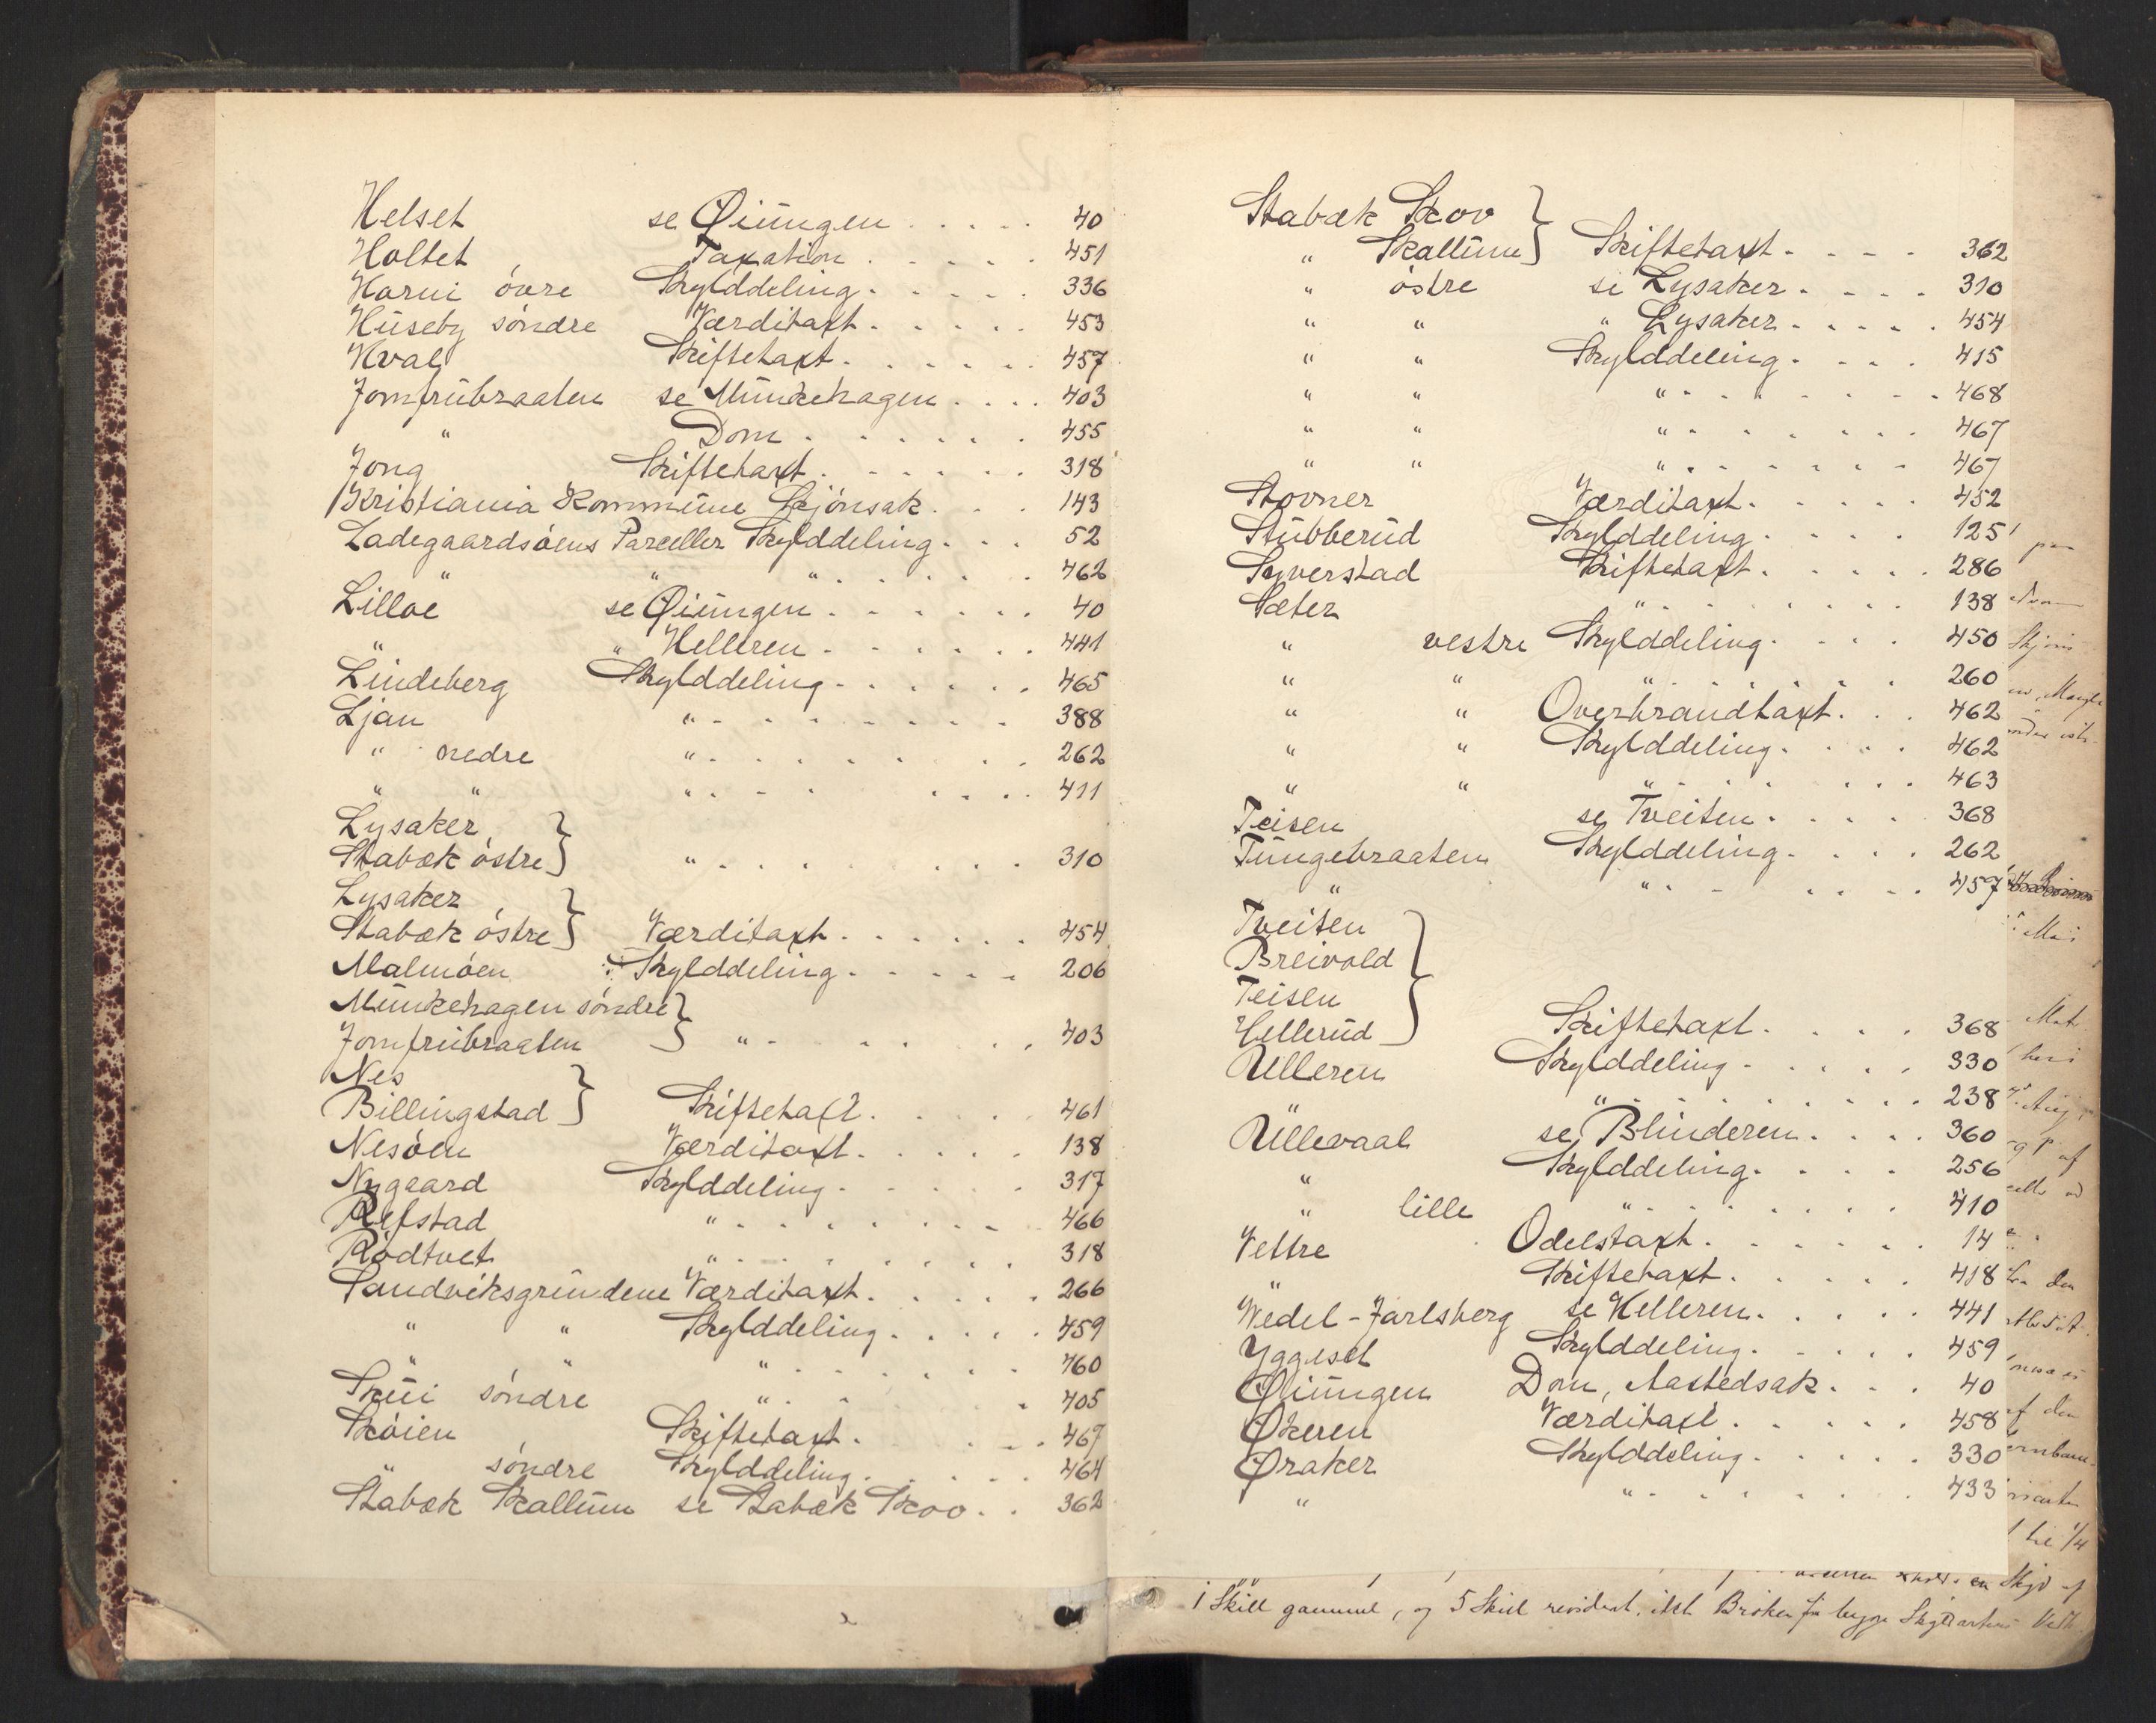 Helset se Øiungen . . . . . 40
Holtet Taxation . . . . . 451
Horni övre Skylddeling . . . . . 336
Huseby söndre Værditaxt . . . . . 453
Hval Skiftetaxt . . . . . . 457
Jomfrubraaten se Munkehagen . . . . 403
" Dom . . . . . . 455
Jong Skiftetaxt . . . . . . 318
Kristiania Kommune Skjönsak . . . 143
Ladegaardsöens Parceller Skylddeling . . . 52
" " " . . . . . . 462
Lilloe se Øiungen . . . . . . 40
" " Helleren . . . . . . 441
Lindeberg Skylddeling . . . . . . 465
Ljan " . . . . . . . . 388
" nedre " . . . . . . . . 262
" " " . . . . . . . 411
Lysaker }
Stabæk östre } " . . . . . . . . 310
Lysaker }
Stabæk östre } Værditaxt . . . . . . 454
Malmöen Skylddeling . . . . . 206
Munkehagen söndre }
Jomfrubraaten } " . . . . . . . 403
Nes }
Billingstad } Skiftetaxt . . . . . 461
Nesöen Værditaxt . . . . . 138
Nygaard Skylddeling . . . . . 317
Refstad " . . . . . . . . 466
Rödtvet " . . . . . . . . 318
Sandviksgrundene Værditaxt . . . . . 266
" " Skylddeling . . . . . 459
" " " . . . . . . . 460
Skui söndre " . . . . 405
Sköien Skiftetaxt . . . . 467
" söndre Skylddeling . . . . . 464
Stabæk Skallum se Stabæk Skov . . 362
Stabæk Skov }
" Skallum } Skiftetaxt . . . . 362
" östre se Lysaker . . . . 310
" " " Lysaker . . . . . 454
" " Skylddeling . . . . 415
" " " . . . . . . . . 468
" " " . . . . . . . 467
" " " . . . . . . . 467
Stovner Værditaxt . . . . . 452
Stubberud Skylddeling . . . . 125
Syverstad Skiftetaxt . . . . . 286
Sæter " . . . . . . . 138
" vestre Skylddeling . . . . 450
" " " . . . . . . . 260
" " Overbrandtaxt . . . 462
" " Skylddeling . . . . 462
" " " . . . . . . . 463
Teisen se Tveiten . . . . 368
Tungebraaten Skylddeling . . . . 262
" " . . . . . . 457
Tveiten }
Breivold }
Teisen }
Hellerud } Skiftetaxt . . . . 368
Ulleren Skylddeling . . . . . 330
" " . . . . . . . . 238
Ullevaal se Blinderen . . . . 360
" Skylddeling . . . . 256
" lille " . . . . . . . 410
Vettre Odelstaxt . . . . . . 14
" Skiftetaxt . . . . . 418
Wedel-Jarlsberg se Helleren . . . . . 441
Yggeset Skylddeling . . . . . 459
Øiungen Dom, Aastedsak . . . 40
Økeren Værditaxt . . . . . 458
Øraker Skylddeling . . . . . 330
" " . . . . . . . 433
1 Skill gammel, og 5 Skill revideret,